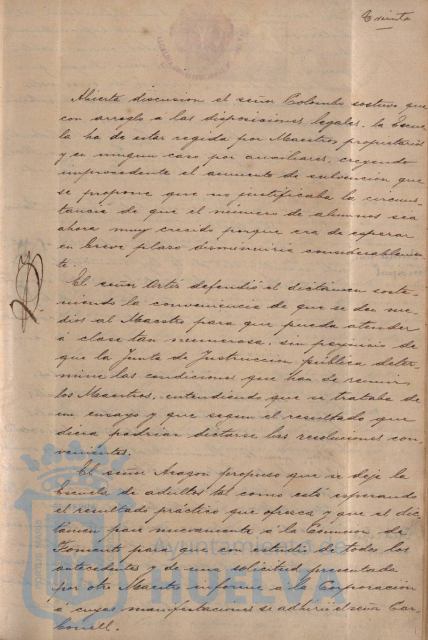 Treinta
Abierta discusion el señor Colombo sostuvo que
con arreglo a las disposiciones legales, la Escue
la ha de estar regida por Maestros propietarios
y en ningun caso por auxiliares, creyendo
improcedente el aumento de subvencion que
se propone que no justificaba la circuns
tancia de que el número de alumnos sea
ahora muy crecido porque era de esperar
en breve plazo disminuiria considerablemen
te.
El señor Ortíz defendió el dictámen soste
niendo la conveniencia de que se den me
dios al Maestro para que pueda atender
á clase tan numerosa, sin perjuicio de
que la Junta de Instruccion pública deter
mine las condiciones que han de reunir
los Maestros, entendiendo que se trataba de
un ensayo y que segun el resultado que
diera podrian dictarse las resoluciones con
venientes.
El señor Aragon propuso que se deje la
Escuela de adultos tal como está esperando
el resultado práctico que ofrezca y que el dic
támen pase nuevamente a la Comision de
Fomento para que con estudio de todos los
antecedentes y de una solicitud presentada
por otro Maestro informe a la Corporacion
á cuyas manifestaciones se adhirió el señor Car
bonell.
Ayuntamiento de
HUELVA